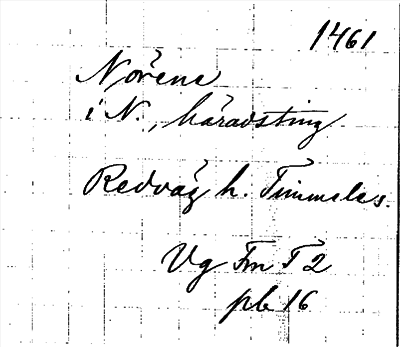 1461
Nörene
i N., häradsting.
Redväg h. Timmele s.
Vg Fm T 2
pb 16